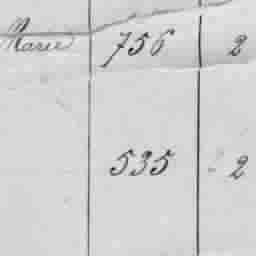 Marie 756 2
535 2